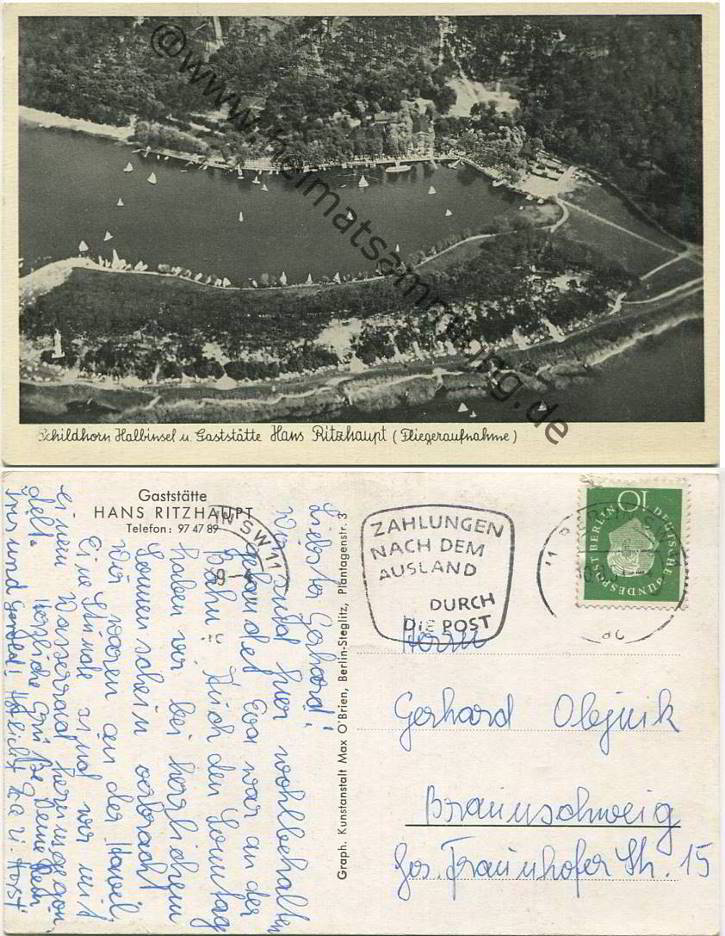 @www.heimatsammlung.de
Schildhorn Halbinsel u. Gaststätte Hans Ritzhaupt (Fliegeraufnahme)
Gaststätte
HANS RITZHAUPT
Telefon: 97 47 89
Liebster Gerhard!
Wir sind hier wohlbehalten
gelandet. Eva war an der
Bahn. Auch den Sonntag
haben wir bei herrlichem
Sonnenschein verbracht
Wir waren an der Havel.
Eine Stunde sind wir mit
einem Wasserrad herumgegon-
delt.
Herzliche Grüße Deine
Iris und Gerold!
Graph. Kunstanstalt Max O'Brien, Berlin-Steglitz, Plantagenstr. 3
ZAHLUNGEN
NACH DEM
AUSLAND
DURCH
DIE POST
IN SW 11
DEUTSCHE BUNDESPOST BERLIN
10
Herrn
Gerhard Olejnik
Braunschweig
Jos. Fraunhofer Str. 15